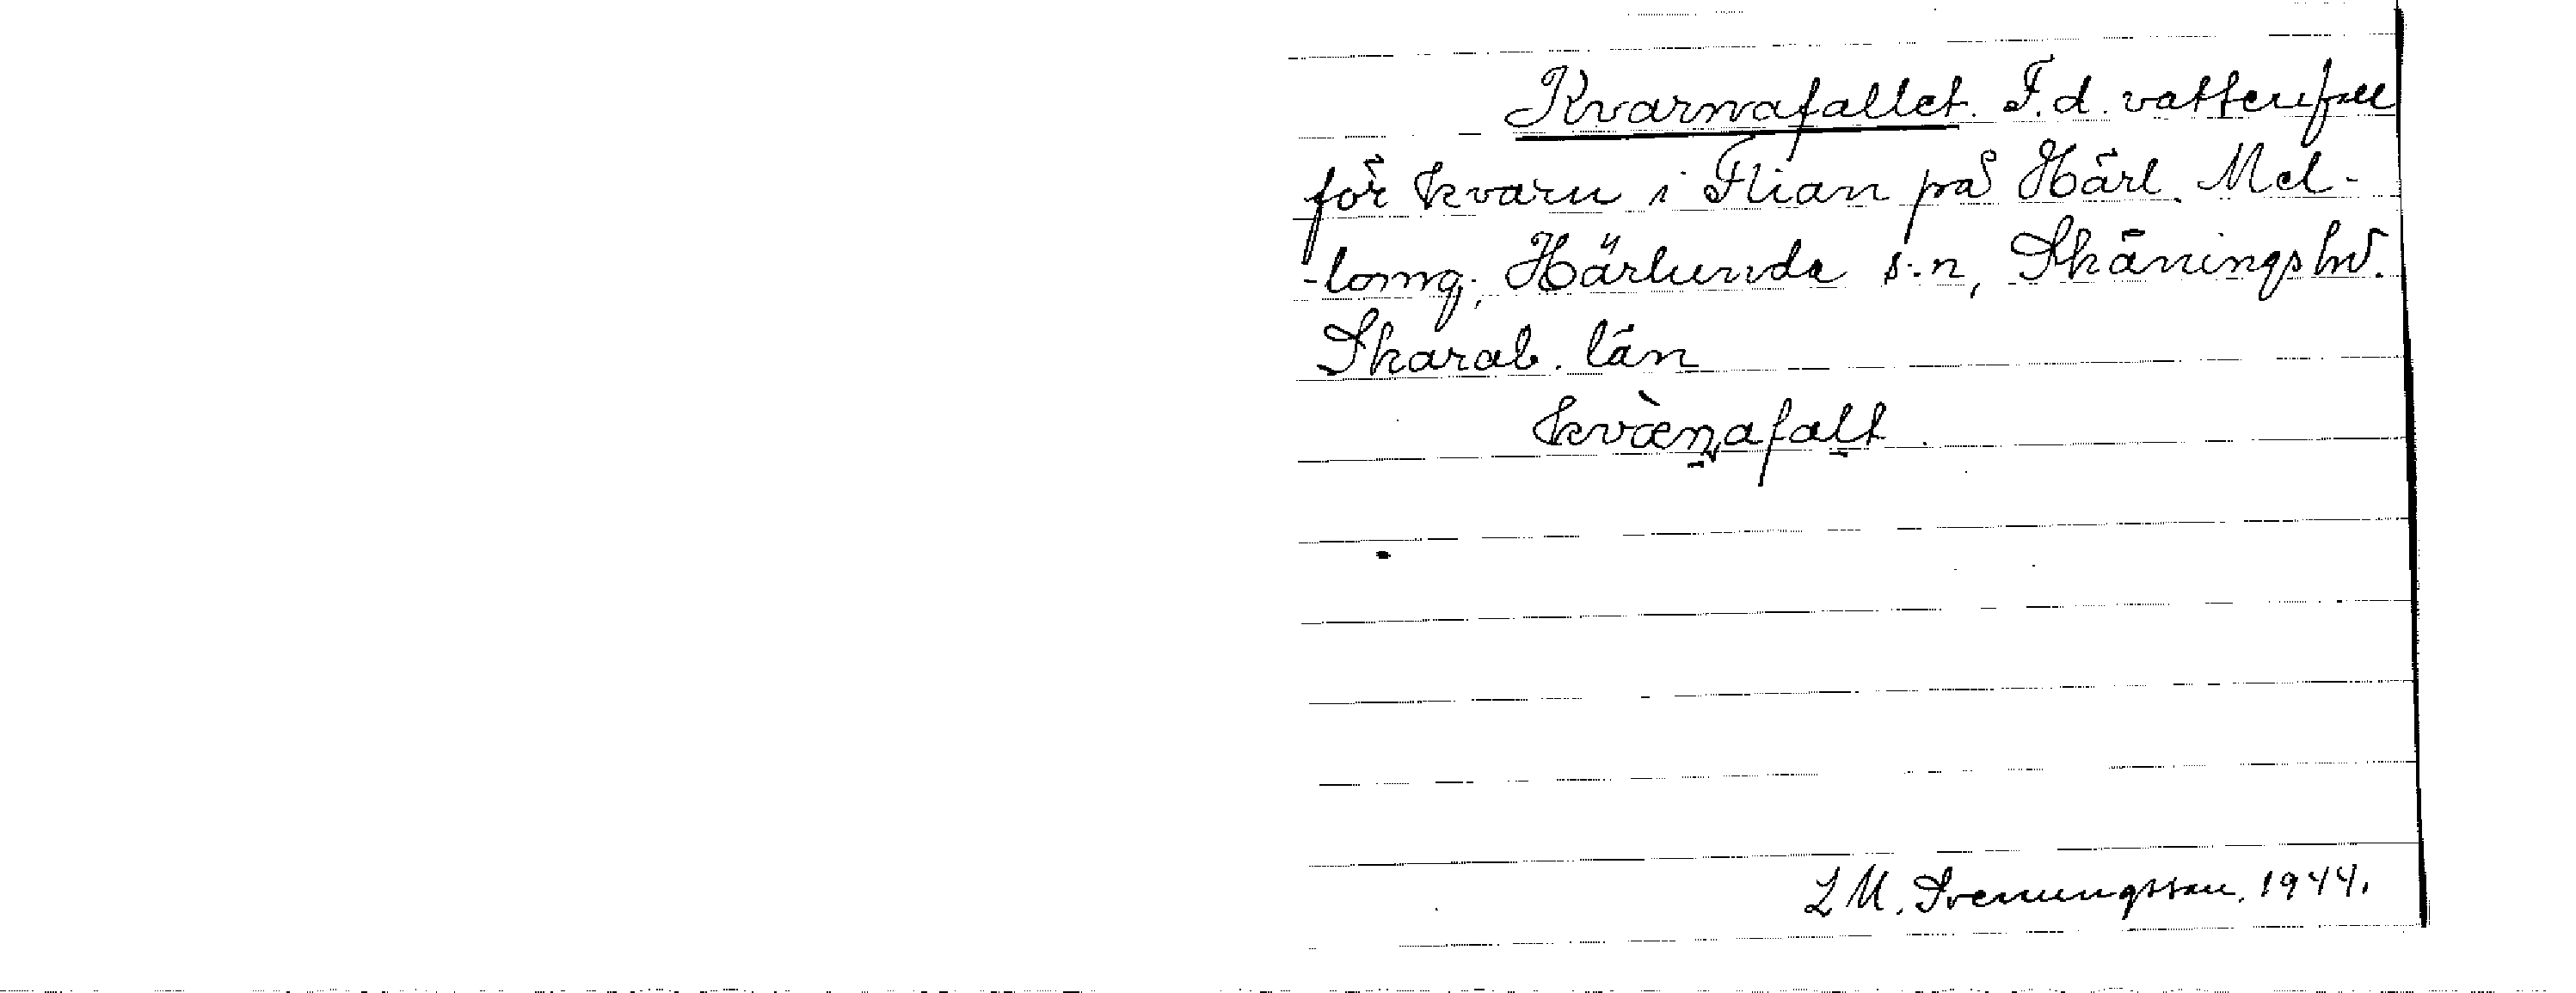 Kvarnafallet. F.d. vattenfall
för kvarn i Flian på Härl. Mel-
-lomg., Härlunda s:n, Skånings hd.
Skarab. län
kvænafalt.
L M. Svenungsson. 1944.